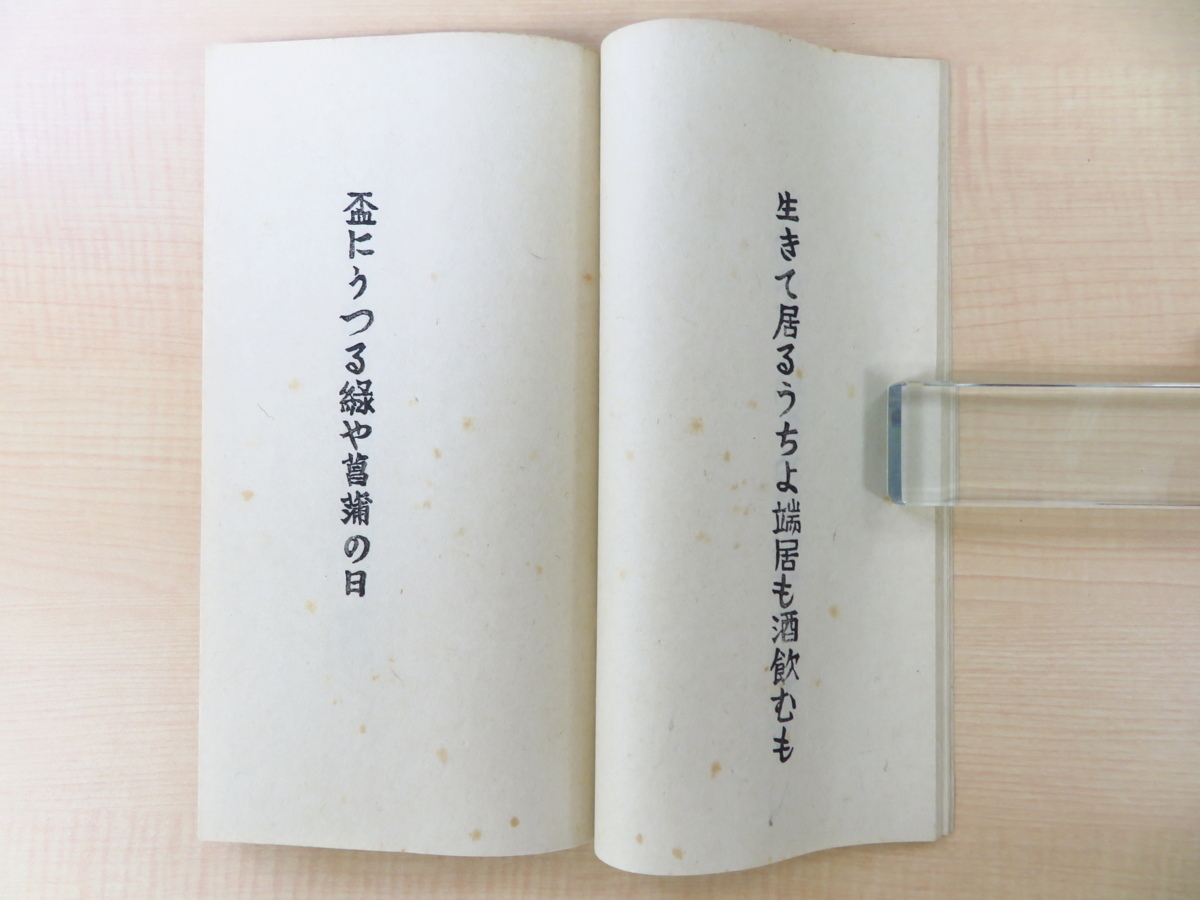 生きて居るうちよ端居も酒飲むも
盃にうつる緑や菖蒲の日